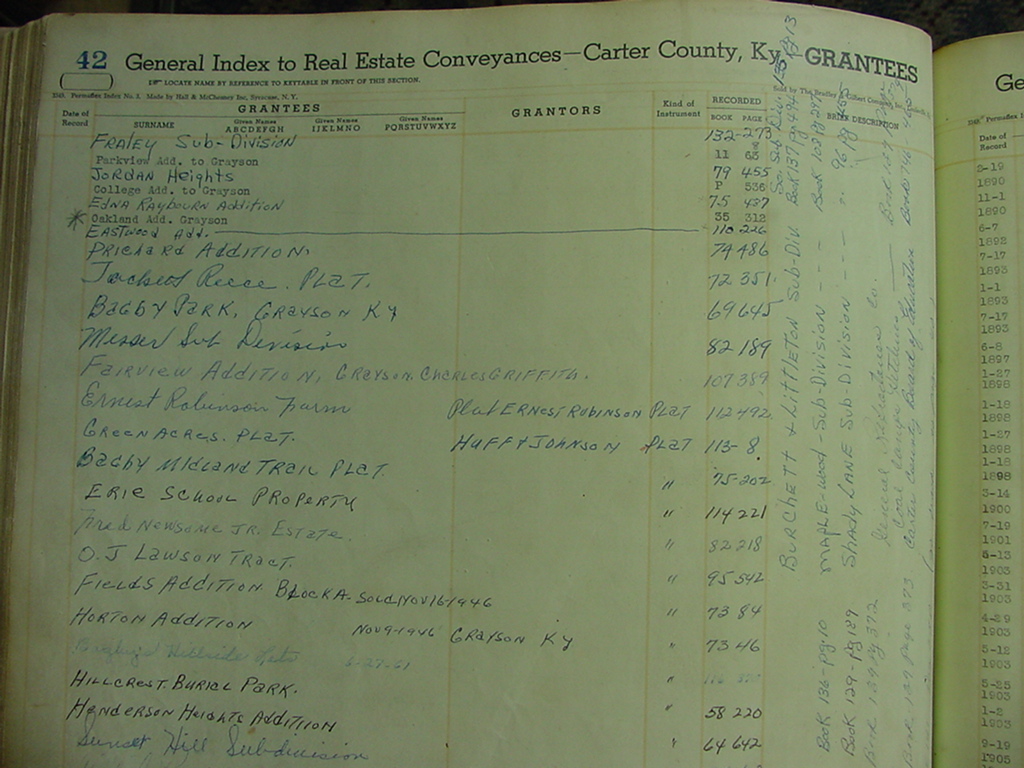 42 General Index to Real Estate Conveyances—Carter County, Ky.—GRANTEES
LOCATE NAME BY REFERENCE TO KEYTABLE IN FRONT OF THIS SECTION.
Made by Hall & McChesney Inc, Syracuse, N. Y.
Date of Record
GRANTEES
SURNAME
Given Names ABCDEFGH
Given Names IJKLMNO
Given Names PQRSTUVWXYZ
GRANTORS
Kind of Instrument
RECORDED
BOOK PAGE
BRIEF DESCRIPTION
FRALEY Sub-Division 132-273
Parkview Add. to Grayson 11 63
JORDAN Heights 79 455
College Add. to Grayson P 536
EDNA RAYBOURN Addition 75 437
* Oakland Add. Grayson 35 312
EASTWOOD Add. 110 226
PRICHARD ADDITION 74 486
Reece. PLAT. 72 351
BAGBY PARK, GRAYSON KY 69 645
Messer Sub Division 82 189
FAIRVIEW ADDITION, GRAYSON. CHARLES GRIFFITH. 107 389
Ernest Robinson Farm Plat ERNEST ROBINSON PLAT 112 492
GREEN ACRES. PLAT. HUFF & JOHNSON PLAT 113-8
BAGBY MIDLAND TRAIL PLAT. " 75-202
ERIC SCHOOL PROPERTY " 114 221
Fred Newsome JR. Estate. " 82 218
O. J LAWSON TRACT. " 95 542
FIELDS ADDITION BLOCK A- SOLD NOV 16-1946 " 73 84
HORTON ADDITION NOV 9-1946 GRAYSON KY " 73 46
Hillside Lots
HILLCREST BURIAL PARK. "
HENDERSON HEIGHTS ADDITION " 58 220
Sunset Hill Subdivision " 64 642
BURCHETT & LITTLETON SUB-DIV Book 137
MAPLE-WOOD-SUB-DIVISION - - - Book
SHADY LANE SUB DIVISION - - - 96 pg
General Co.
Coal
Carter County Board of Education
Book 136-pg-10
Book 129-pg 189
Book 139 pg 372
Book 139 page 373
Ge
Date of Record
2-19
1890
11-1
1890
6-7
1892
7-17
1893
1-1
1893
7-17
1893
6-8
1897
1-27
1898
1-18
1898
1-27
1898
1-18
1898
3-14
1900
7-19
1901
5-13
1903
3-31
1903
4-29
1903
5-12
1903
5-25
1903
1-2
1903
9-19
1905